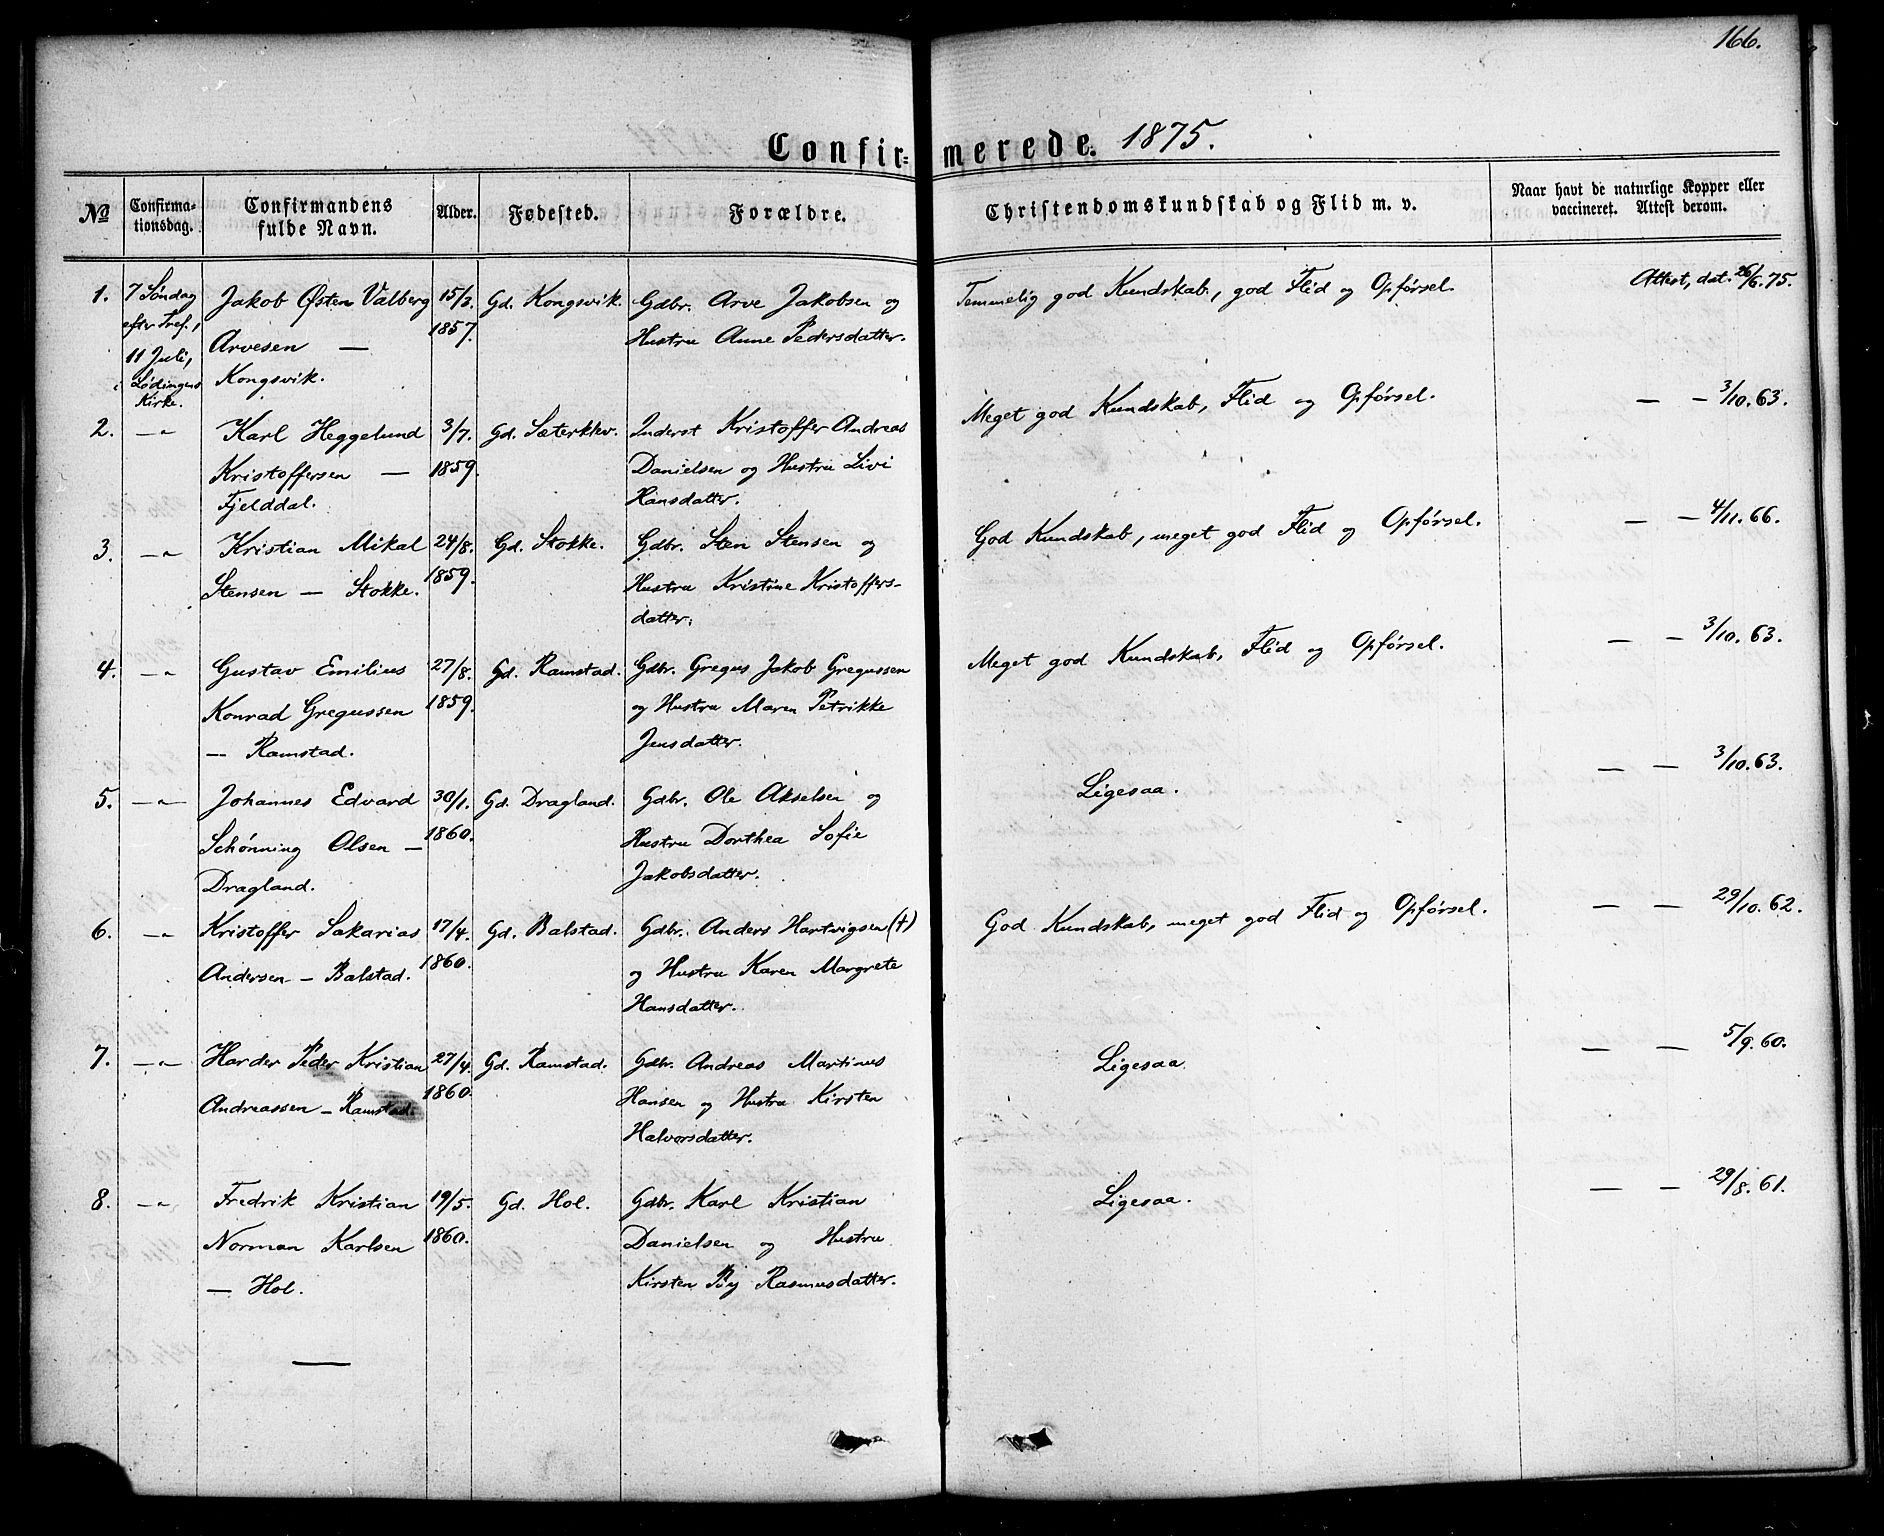 166.
Confirmerede. 1875.
No
Confirmationsdag.
Confirmandens fulde Navn.
Alder.
Fødested.
Forældre.
Christendomskundskab og Flid m. v.
Naar havt de naturlige Kopper eller vaccineret. Attest derom.
1. 7 Søndag efter Tref., 11 Juli, i Lødingens Kirke.
Jakob Østen Valberg
Arvesen —
Kongsvik.
15/3. 1857.
Gd. Kongsvik.
Gdbr. Arve Jakobsen og
Hustru Anne Pedersdatter.
Temmelig god Kundskab, god Flid og Opførsel.
Attest, dat. 26/6. 75.
2. —„—
Karl Heggelund
Kristoffersen —
Fjelddal.
3/7. 1859.
Gd. Sæterklev.
Inderst Kristoffer Andreas
Danielsen og Hustru Livi
Hansdatter.
Meget god Kundskab, Flid og Opførsel.
— — 3/10. 63.
3. —„—
Kristian Mikal
Stensen — Stokke.
24/8. 1859.
Gd. Stokke.
Gdbr. Sten Stensen og
Hustru Kristine Kristoffers-
datter.
God Kundskab, meget god Flid og Opførsel.
— — 4/11. 66.
4. —„—
Gustav Emilius
Konrad Gregussen
— Ramstad.
27/8. 1859.
Gd. Ramstad.
Gdbr. Gregus Jakob Gregussen
og Hustru Maren Petrikke
Jensdatter.
Meget god Kundskab, Flid og Opførsel.
— — 3/10. 63.
5. —„—
Johannes Edvard
Schønning Olsen —
Dragland.
30/1. 1860.
Gd. Dragland.
Gdbr. Ole Akselsen og
Hustru Dorthea Sofie
Jakobsdatter.
Ligesaa.
— — 3/10. 63.
6. —„—
Kristoffer Sakarias
Andersen — Balstad.
17/4. 1860.
Gd. Balstad.
Gdbr. Anders Hartvigsen (†)
og Hustru Karen Margrete
Hansdatter.
God Kundskab, meget god Flid og Opførsel.
— — 29/10. 62.
7. —„—
Harder Peder Kristian
Andreassen — Ramstad.
27/4. 1860.
Gd. Ramstad.
Gdbr. Andreas Martinus
Hansen og Hustru Kirsten
Halvorsdatter.
Ligesaa.
— — 5/9. 60.
8. —„—
Fredrik Kristian
Norman Karlsen
— Hol.
19/5. 1860.
Gd. Hol.
Gdbr. Karl Kristian
Danielsen og Hustru
Kirsten Rasmusdatter.
Ligesaa.
— — 29/8. 61.